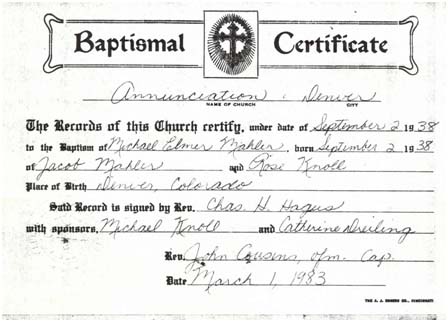 Baptismal Certificate
Annunciation, Denver
NAME OF CHURCH CITY
The Records of this Church certify, under date of September 2 1938
to the Baptism of Michael Elmer Mahler, born September 2 1938
of Jacob Mahler and Rose Knoll
Place of Birth Denver, Colorado
Said Record is signed by Rev. Chas. H. Hagus
with sponsors, Michael Knoll and Catherine Dreiling
Rev. John Cousins, ofm. Cap.
Date March 1, 1983